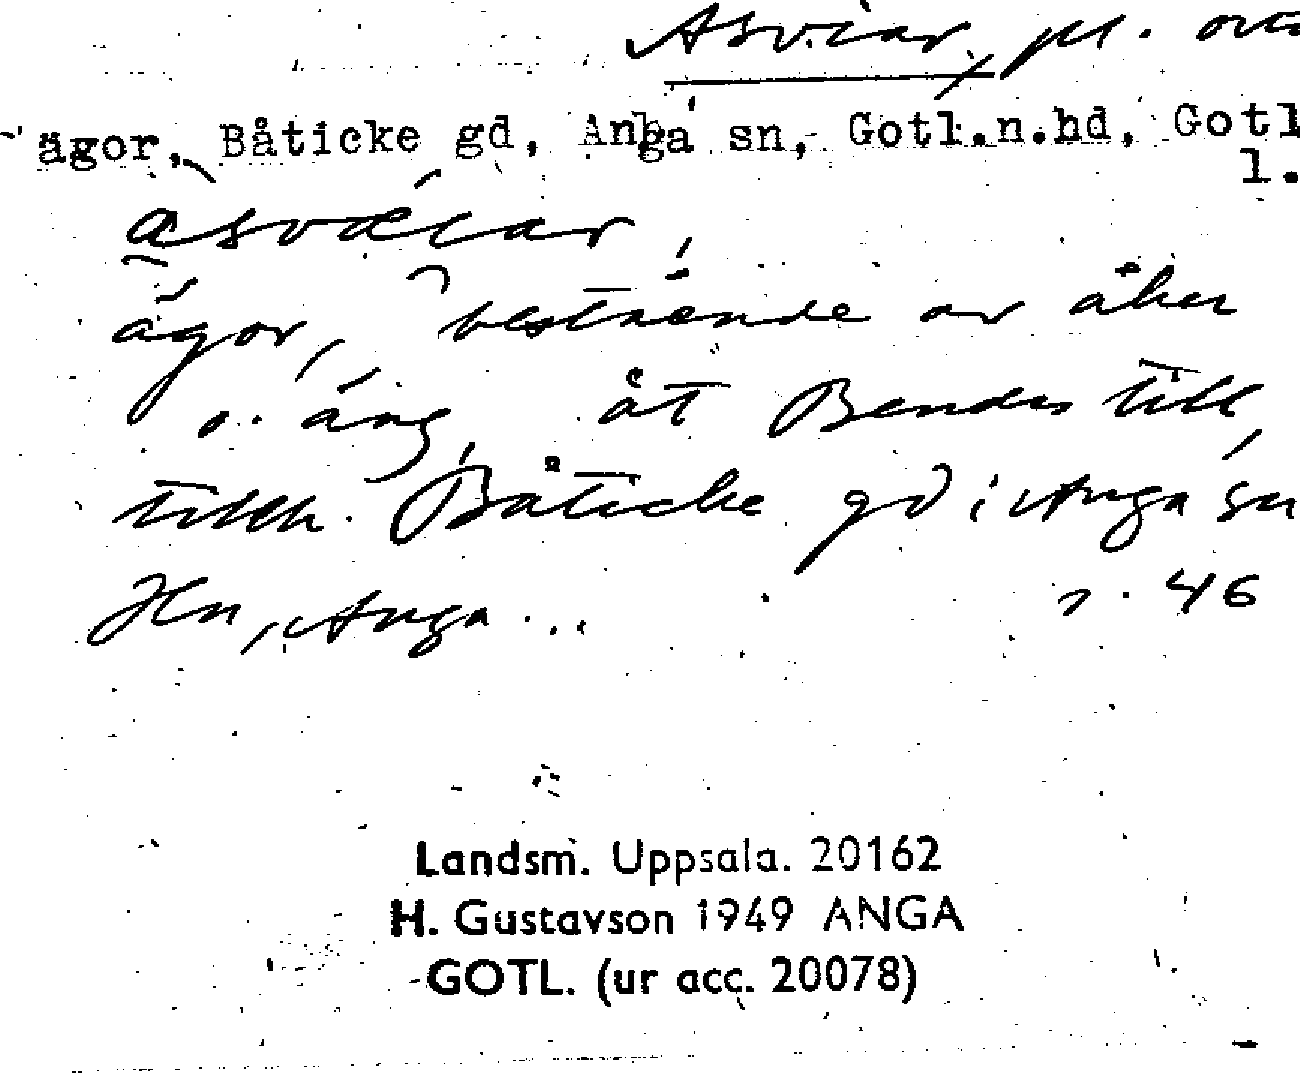 Asviar, pl. ortn
ägor, Båticke gd, Anga sn, Gotl.n.hd, Gotl
l.
asvælar,
ägor, bestående av åker
o. äng åt Bendes till,
tillh. Båticke gd i Anga sn
Hn, Anga ... s. 46
Landsm. Uppsala. 20162
H. Gustavson 1949 ANGA
GOTL. (ur acc. 20078)